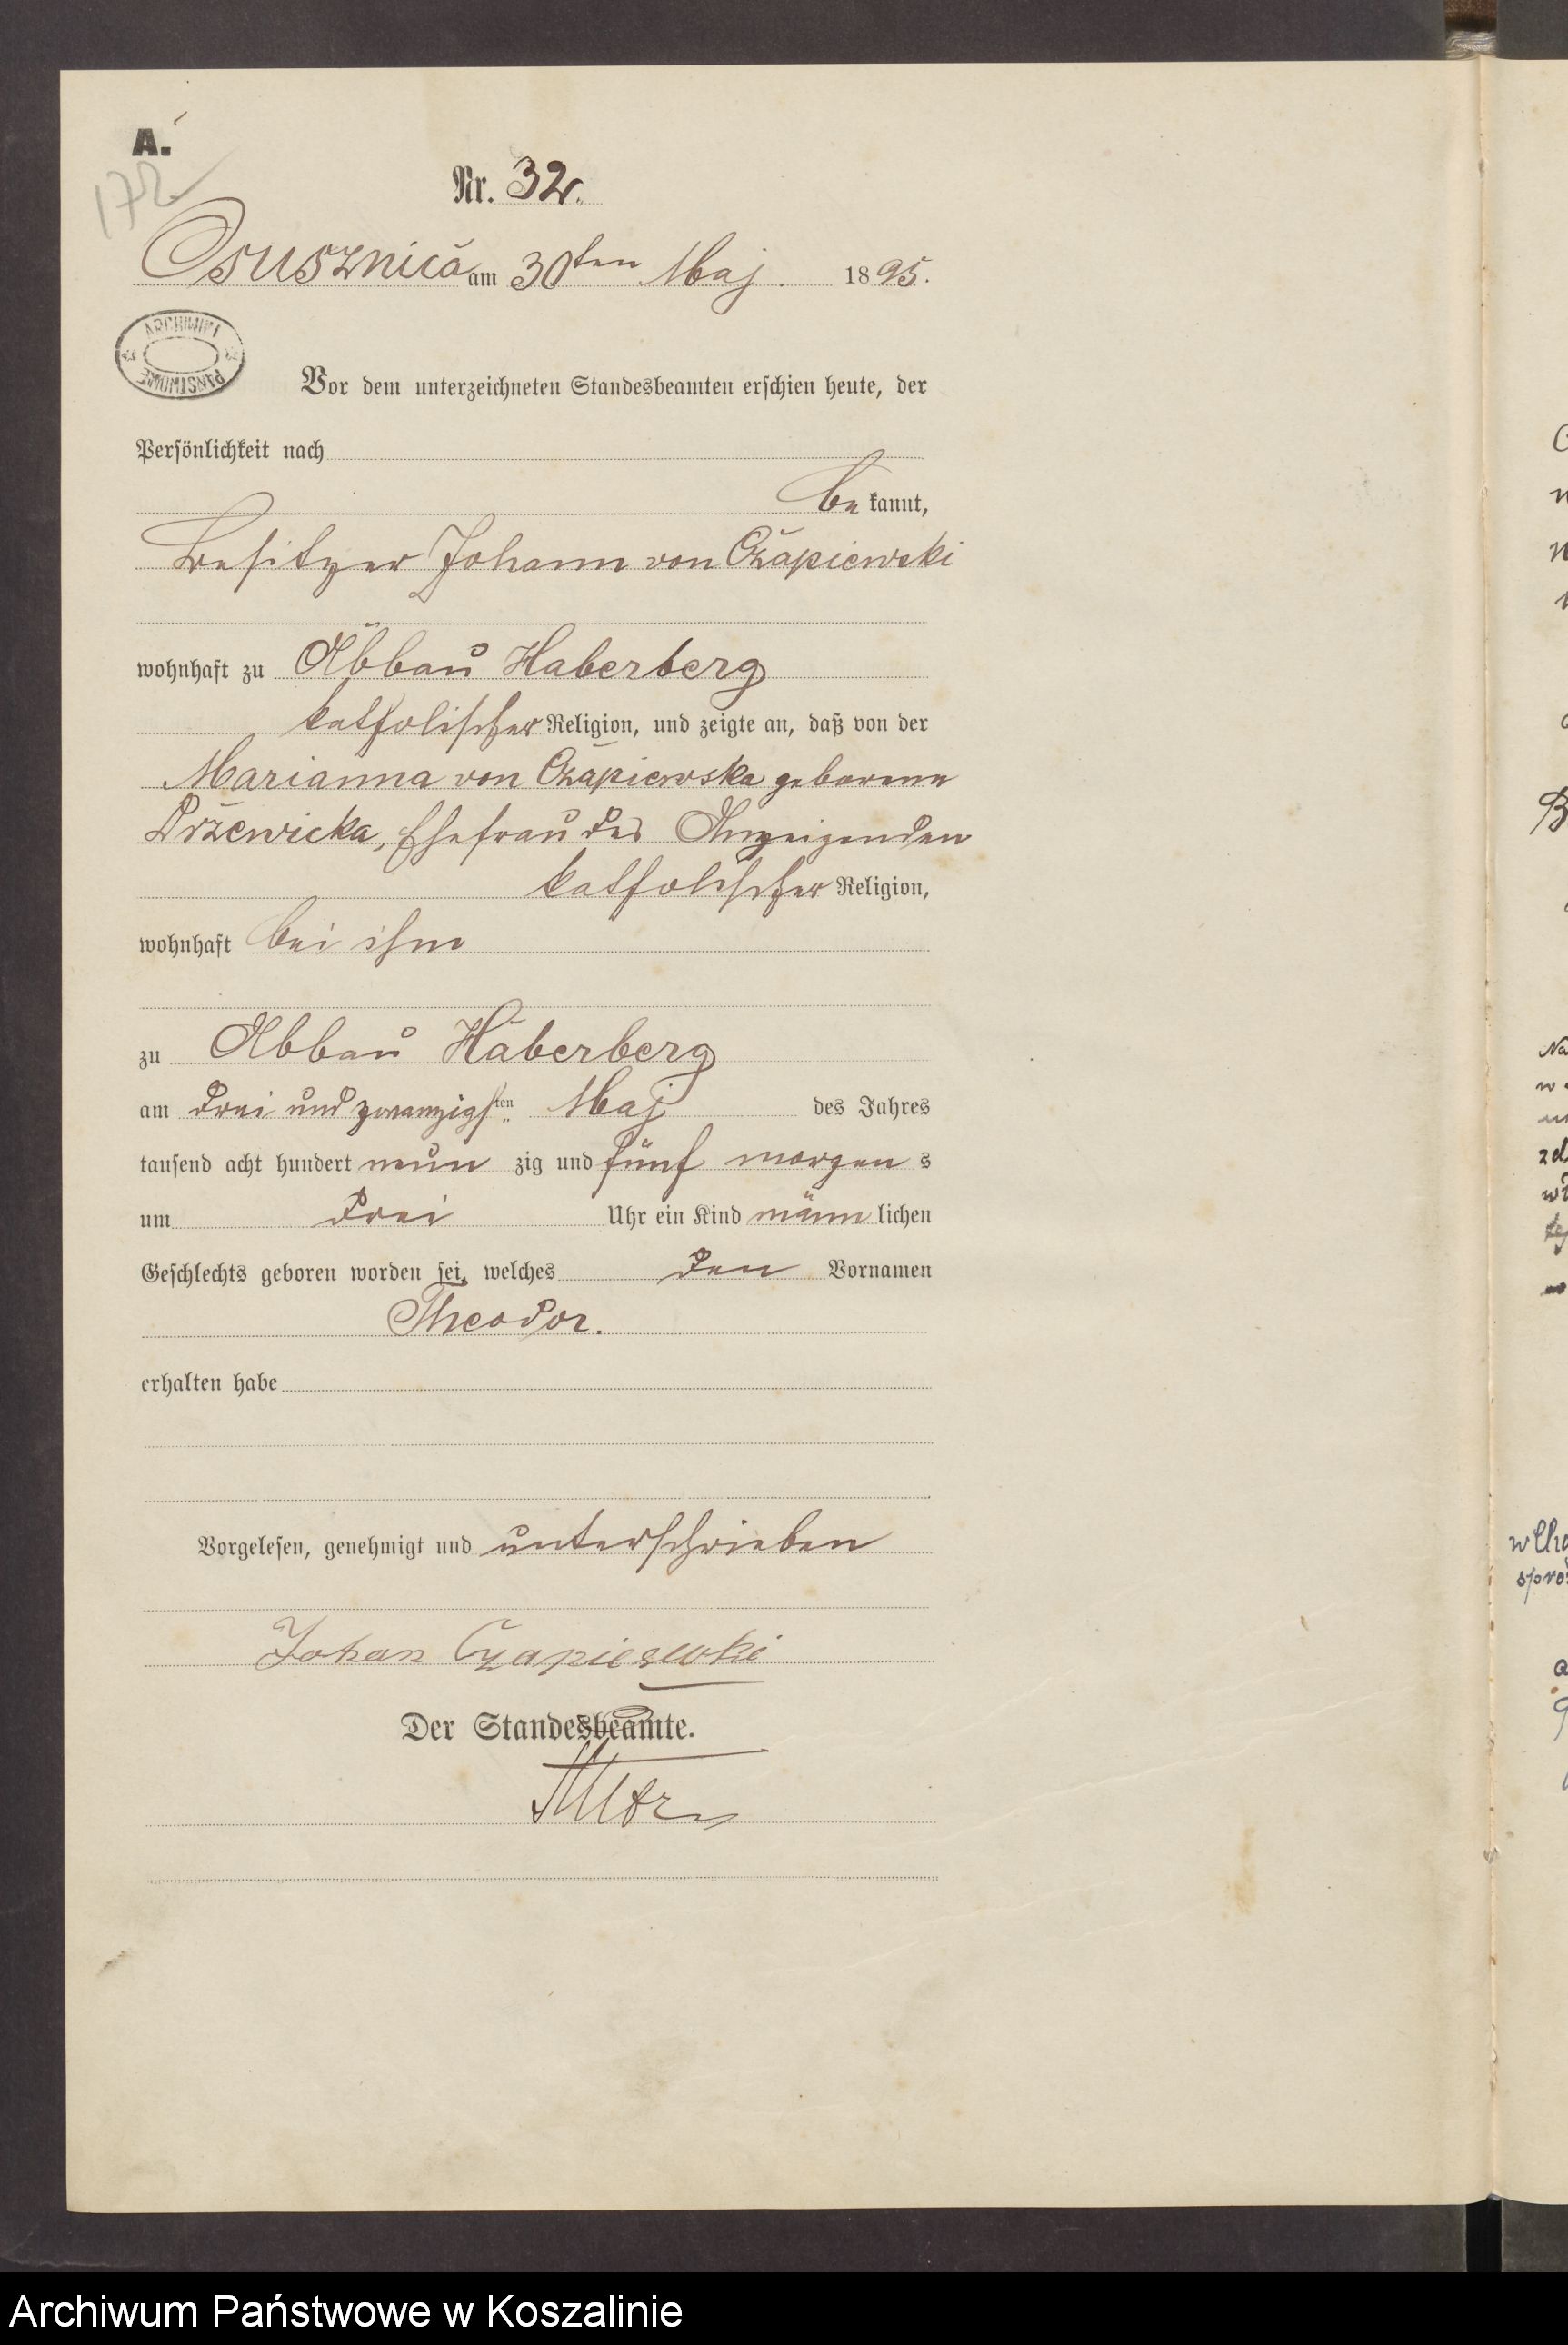 A.
172
Nr. 32.
Osusznica am 30ten Maj. 1895.
ARCHIWUM PAŃSTWOWE
Vor dem unterzeichneten Standesbeamten erschien heute, der
Persönlichkeit nach
be kannt,
Besitzer Johann von Czapiewski
wohnhaft zu Abbau Haberberg
katholischer Religion, und zeigte an, daß von der
Marianna von Czapiewska geborene
Drzewicka, Ehefrau des Anzeigenden
katholischer Religion,
wohnhaft bei ihm
zu Abbau Haberberg
am drei und zwanzigsten Maj des Jahres
tausend acht hundert neun zig und fünf morgen s
um drei Uhr ein Kind männ lichen
Geschlechts geboren worden sei, welches den Vornamen
Theodor.
erhalten habe
Vorgelesen, genehmigt und unterschrieben
Johan Czapiewski
Der Standesbeamte.
Archiwum Państwowe w Koszalinie